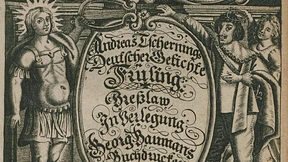 Andreas Tscherning
Deutscher Getichte
Früling.
Breßlaw
In Verlegung
Georg Baumans
Buchdruck